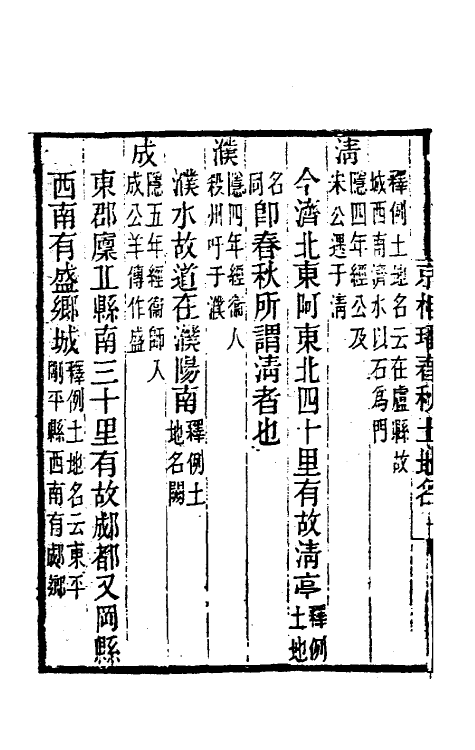 京相璠春秋土地名
釋例土地名云在盧縣故
城西南濟水以石為門
清
隱四年經公及
宋公遇于清
今濟北東阿東北四十里有故清亭
釋例
土地
名
同
即春秋所謂清者也
濮
隱四年經衞人
殺州吁于濮
濮水故道在濮陽南
釋例土
地名闕
成
隱五年經衞師入
成公羊傳作盛
東郡廩丘縣南三十里有故郕都又岡縣
西南有盛鄉城
釋例土地名云東平
剛平縣西南有郕鄉